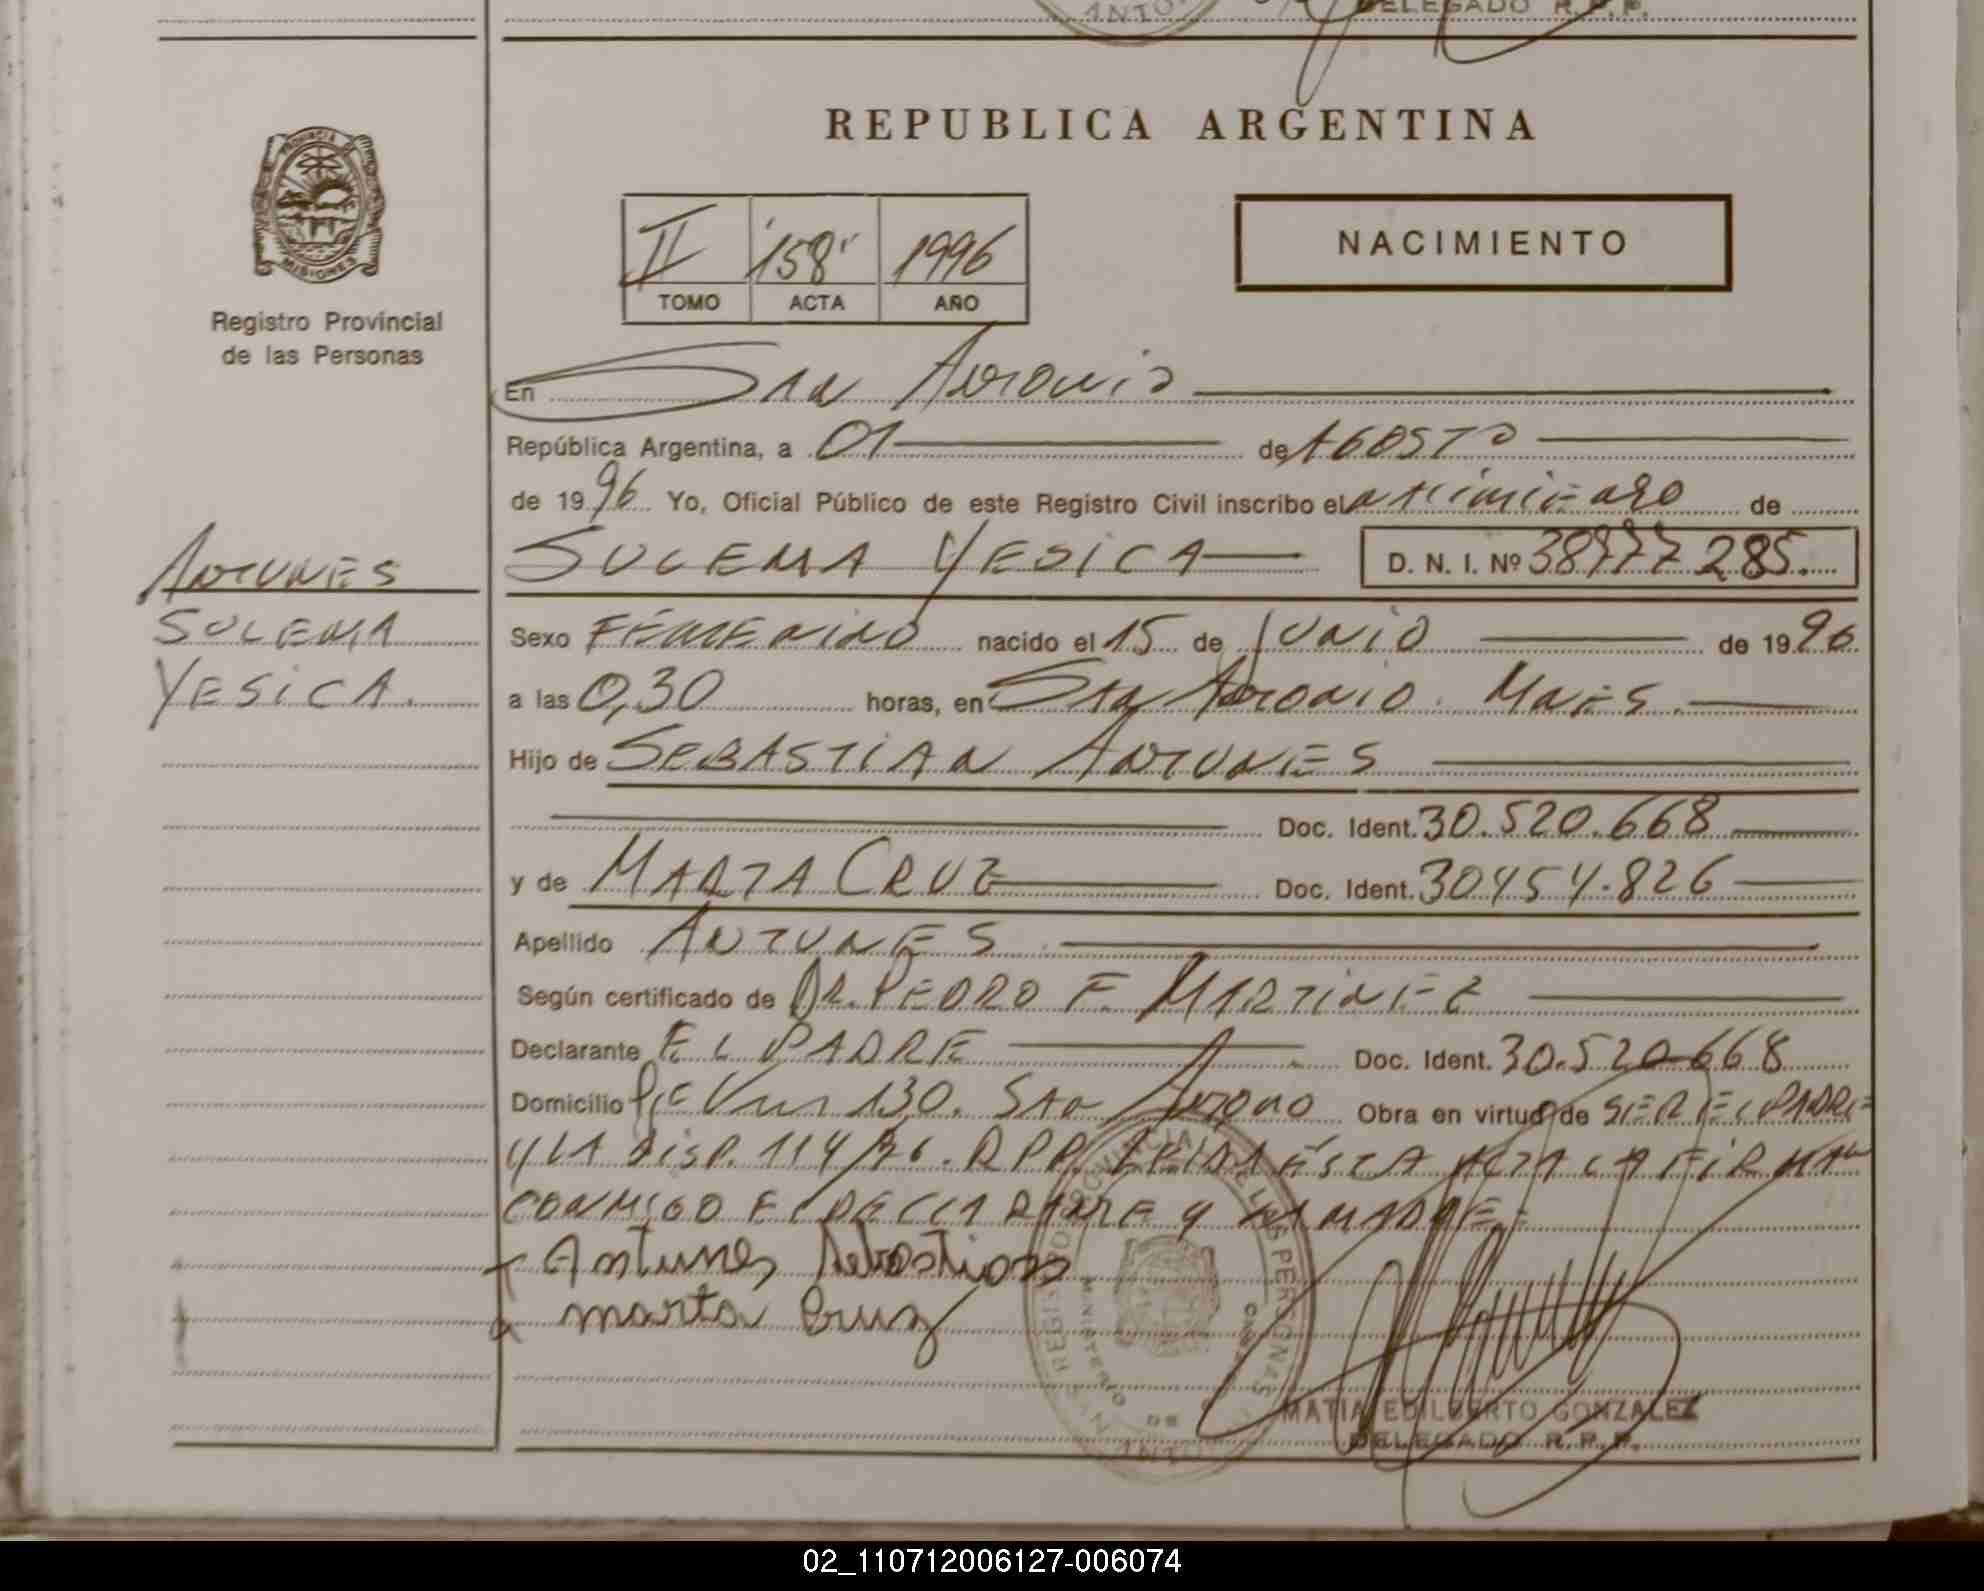 DELEGADO R.P.P.
REPUBLICA ARGENTINA
PROVINCIA DE MISIONES
Registro Provincial
de las Personas
II 158 1996
TOMO ACTA AÑO
NACIMIENTO
En San Antonio
República Argentina, a 01 de AGOSTO
de 1996 Yo, Oficial Público de este Registro Civil inscribo el nacimiento de
SULEMA YESICA D. N. I. Nº 38777285.
ANTUNES
SULEMA
YESICA.
Sexo FEMENINO nacido el 15 de JUNIO de 1996
a las 0,30 horas, en San Antonio. Mnes.
Hijo de SEBASTIAN ANTUNES
Doc. Ident. 30.520.668
y de MARTA CRUZ Doc. Ident. 30454.826
Apellido ANTUNES
Según certificado de DR. PEDRO F. MARTINEZ
Declarante EL PADRE Doc. Ident. 30.520.668
Domicilio 130. San Antonio Obra en virtud de SER EL PADRE
Y LA DISP. 114/76. RPP. LEIDA ESTA ACTA LA FIRMAN
CONMIGO EL DECLARANTE Y LA MADRE.
Antunes Sebastian
marta Cruz
REGISTRO PROVINCIAL DE LAS PERSONAS
MINISTERIO DE
SAN ANTONIO
MATIA EDILBERTO GONZALEZ
DELEGADO R.P.P.
02_110712006127-006074